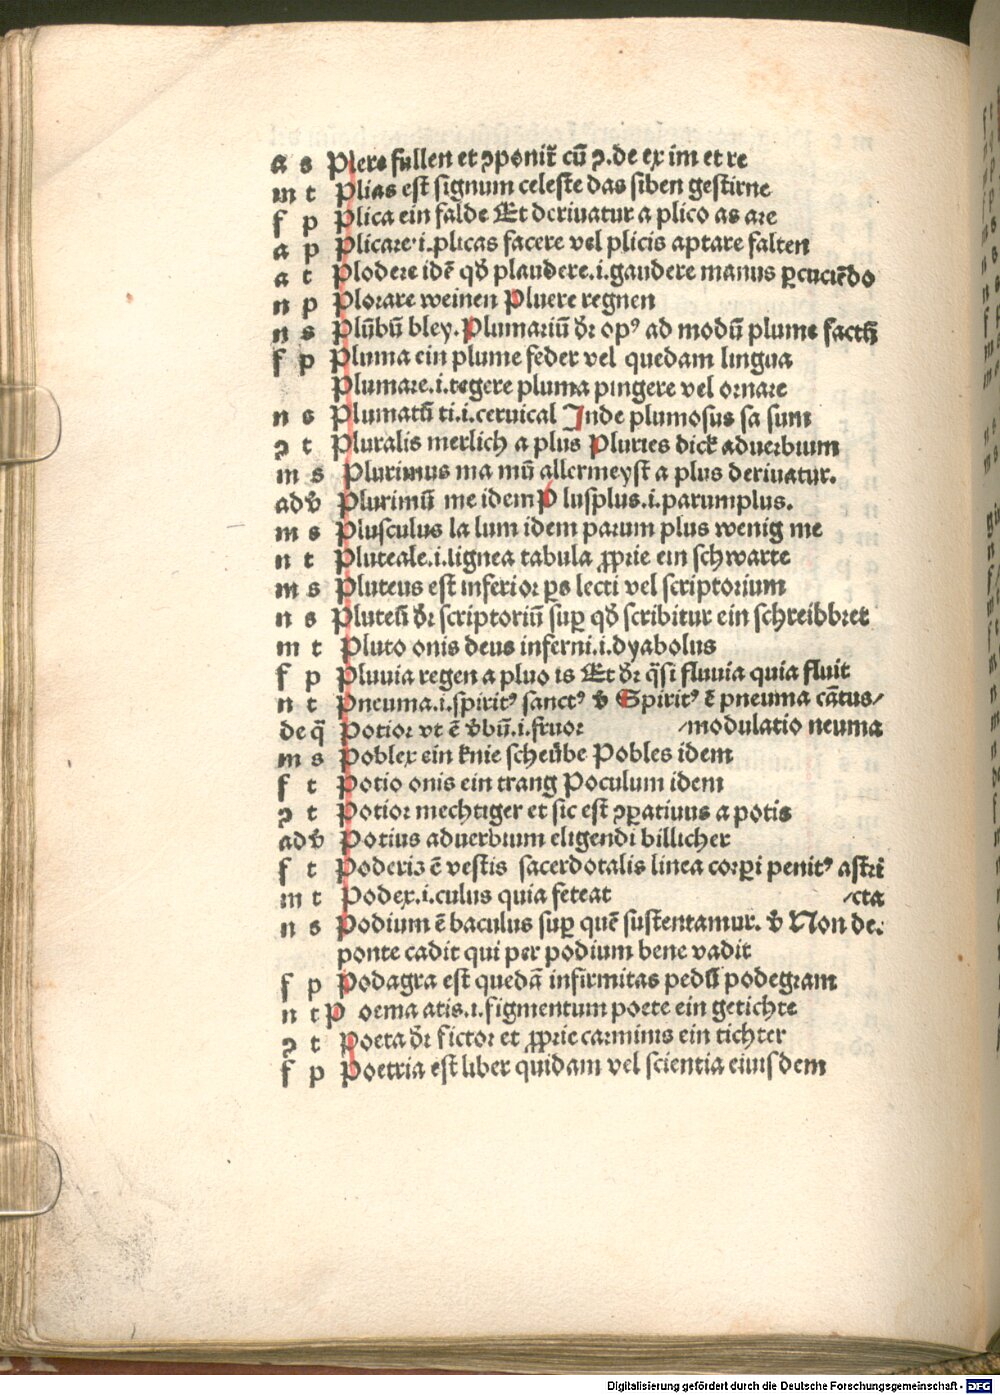 a s Plere fullen et ꝯponit̄ cū ꝯ.de ex im et re
m t Plias est signum celeste das siben gestirne
f p Plica ein falde Et deriuatur a plico as are
a p Plicare.i.plicas facere vel plicis aptare falten
a t Plodere idē qđ plaudere.i.gaudere manus ꝑcuciēdo
n p Plorare weinen Pluere regnen
n s Plūbū bley. Plumariū dr̄ opꝰ ad modū plume factū
f p Pluma ein plume feder vel quedam lingua
Plumare.i.tegere pluma pingere vel ornare
n s Plumatū ti.i.ceruical Inde plumosus sa sum
ꝯ t Pluralis merlich a plus Pluries dick aduerbium
m s Plurimus ma mū allermeyst a plus deriuatur.
adv̄ Plurimū me idem P lusplus.i.parumplus.
m s Plusculus la lum idem parum plus wenig me
n t Pluteale.i.lignea tabula ꝓprie ein schwarte
m s Pluteus est inferior ꝑs lecti vel scriptorium
n s Pluteū dr̄ scriptoriū suꝑ qđ scribitur ein schreibbret
m t Pluto onis deus inferni.i.dyabolus
f p Pluuia regen a pluo is Et dr̄ q̄si fluuia quia fluit
n t Pneuma.i.spiritꝰ sanctꝰ v̄ Spiritꝰ ē pneuma cātus/
de q̄ Potior vt ē v̄bū.i.fruor /modulatio neuma
m s Poblex ein knie scheübe Pobles idem
f t Potio onis ein trang Poculum idem
ꝯ t Potior mechtiger et sic est ꝯꝑatiuus a potis
adv̄ Potius aduerbium eligendi billicher
f t Poderiz ē vestis sacerdotalis linea corꝑi penitꝰ astri
m t Podex.i.culus quia feteat /cta
n s Podium ē baculus suꝑ quē sustentamur. v̄ Non de:
ponte cadit qui per podium bene vadit
f p Podagra est quedā infirmitas pedū podegram
n t P oema atis.i.figmentum poete ein getichte
ꝯ t Poeta dr̄ fictor et ꝓprie carminis ein tichter
f p Poetria est liber quidam vel scientia eiusdem
Digitalisierung gefördert durch die Deutsche Forschungsgemeinschaft - DFG